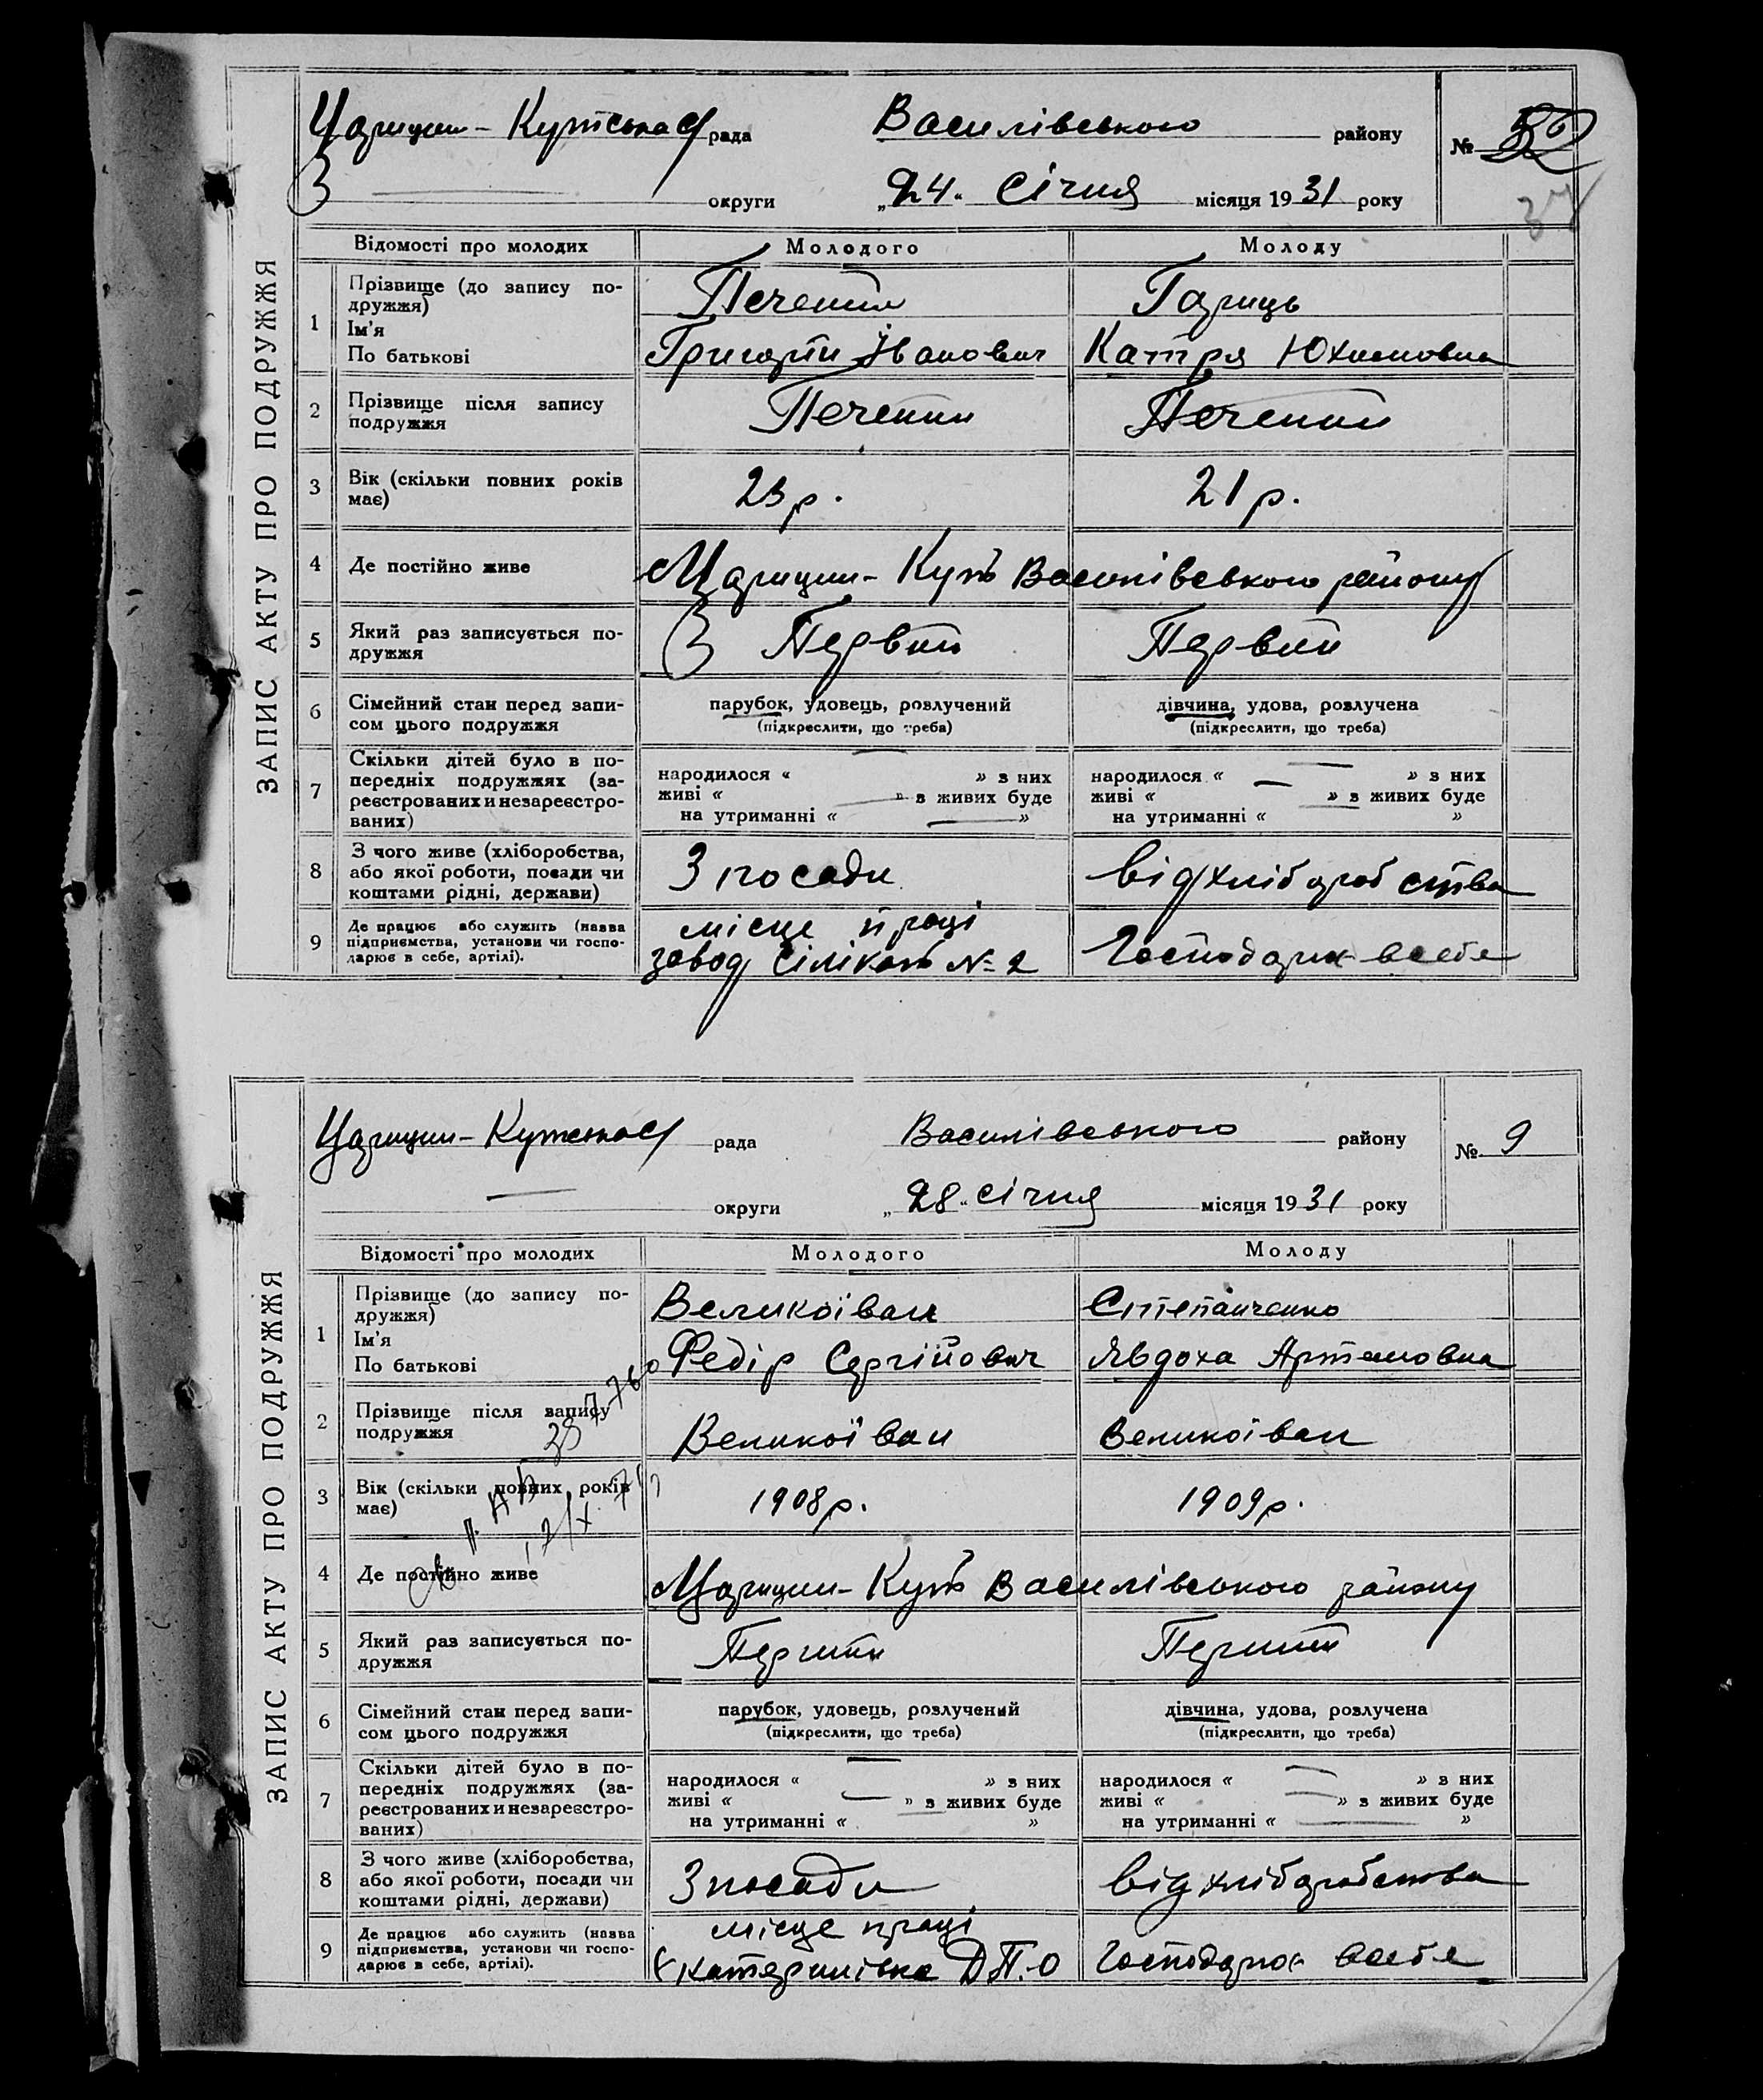 ЗАПИС АКТУ ПРО ПОДРУЖЖЯ
Царицин-Кутська рада Василівського району №
округи „24“ Січня місяця 1931 року
37
Відомості про молодих Молодого Молоду
1 Прізвище (до запису по-
дружжя) Печений Гариць
Ім'я
По батькові Григорій Іванович Катря Юхимовна
2 Прізвище після запису
подружжя Печений Печений
3 Вік (скільки повних років
має) 23 р. 21 р.
4 Де постійно живе Царицин-Кут Василівського району
5 Який раз записується по-
дружжя Первий Первий
6 Сімейний стан перед запи-
сом цього подружжя
парубок, удовець, розлучений дівчина, удова, розлучена
(підкреслити, що треба) (підкреслити, що треба)
7 Скільки дітей було в по-
передніх подружжях (за-
реєстрованих и незареєстро-
ваних)
народилося « » з них народилося « » з них
живі « » з живих буде живі « » з живих буде
на утриманні « » на утриманні « »
8 З чого живе (хліборобства,
або якої роботи, посади чи
коштами рідні, держави)
З посади від хліборобства
9 Де працює або служить (назва
підприємства, установи чи госпо-
дарює в себе, артілі).
місце праці
завод Сілікат №2 Господарює в себе
ЗАПИС АКТУ ПРО ПОДРУЖЖЯ
Царицин-Кутська рада Василівського району № 9
округи „28“ січня місяця 1931 року
Відомості про молодих Молодого Молоду
1 Прізвище (до запису по-
дружжя) Великоіван Степанченко
Ім'я
По батькові Федір Сергійович Явдоха Артемовна
2 Прізвище після запису
подружжя Великоїван Великоіван
3 Вік (скільки повних років
має) 1908 р. 1909 р.
4 Де постійно живе Царицин-Кут Василівського району
5 Який раз записується по-
дружжя Перший Перший
6 Сімейний стан перед запи-
сом цього подружжя
парубок, удовець, розлучений дівчина, удова, розлучена
(підкреслити, що треба) (підкреслити, що треба)
7 Скільки дітей було в по-
передніх подружжях (за-
реєстрованих и незареєстро-
ваних)
народилося « » з них народилося « » з них
живі « » з живих буде живі « » з живих буде
на утриманні « » на утриманні « »
8 З чого живе (хліборобства,
або якої роботи, посади чи
коштами рідні, держави)
З посади від хліборобства
9 Де працює або служить (назва
підприємства, установи чи госпо-
дарює в себе, артілі).
місце праці
Катеринівка Д.П.О Господарює в себе